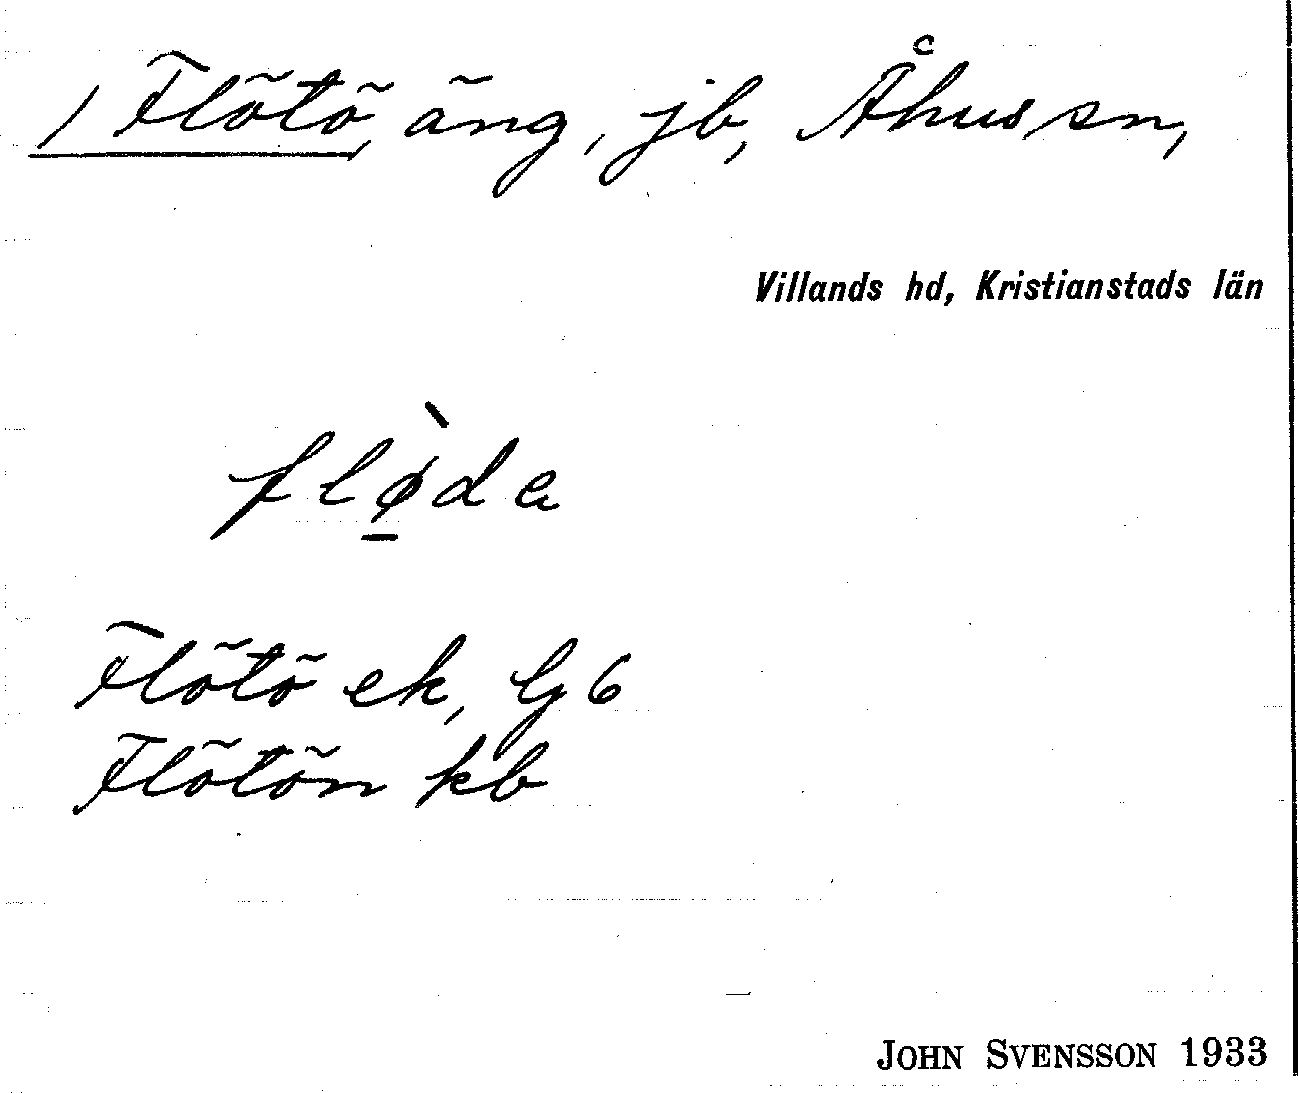 1 Flötö, äng, jb, Åhus sn,
Villands hd, Kristianstads län
flø̀de
Flötö ek, lj 6
Flötön kb
JOHN SVENSSON 1933